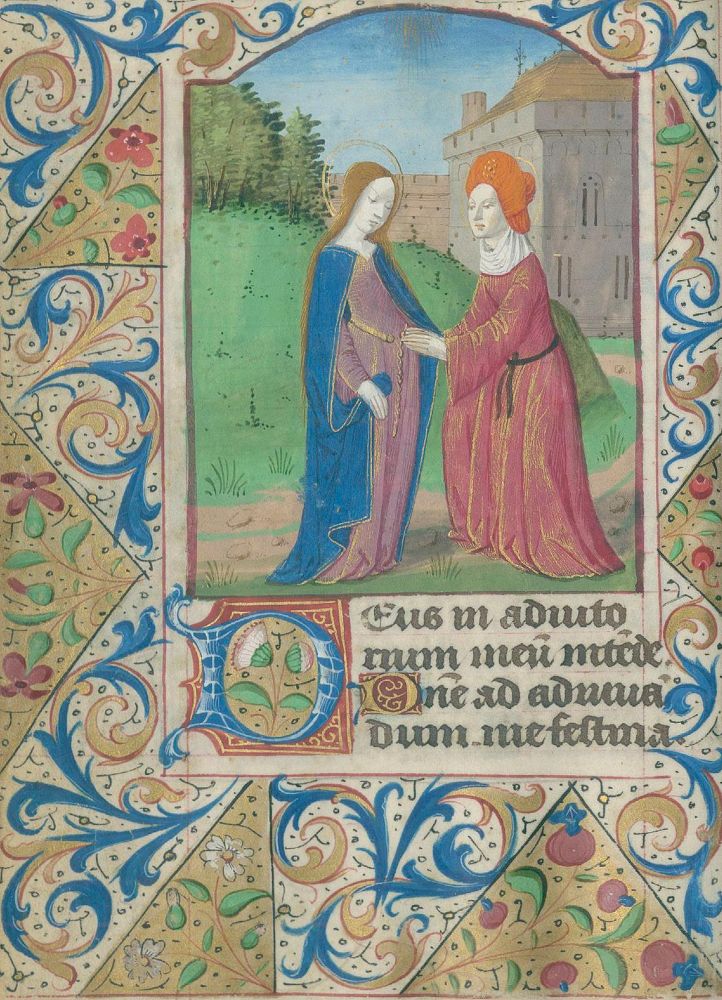 Deus in adiuto
rium meū intēde
Dnē ad adiuuā
dum me festina.